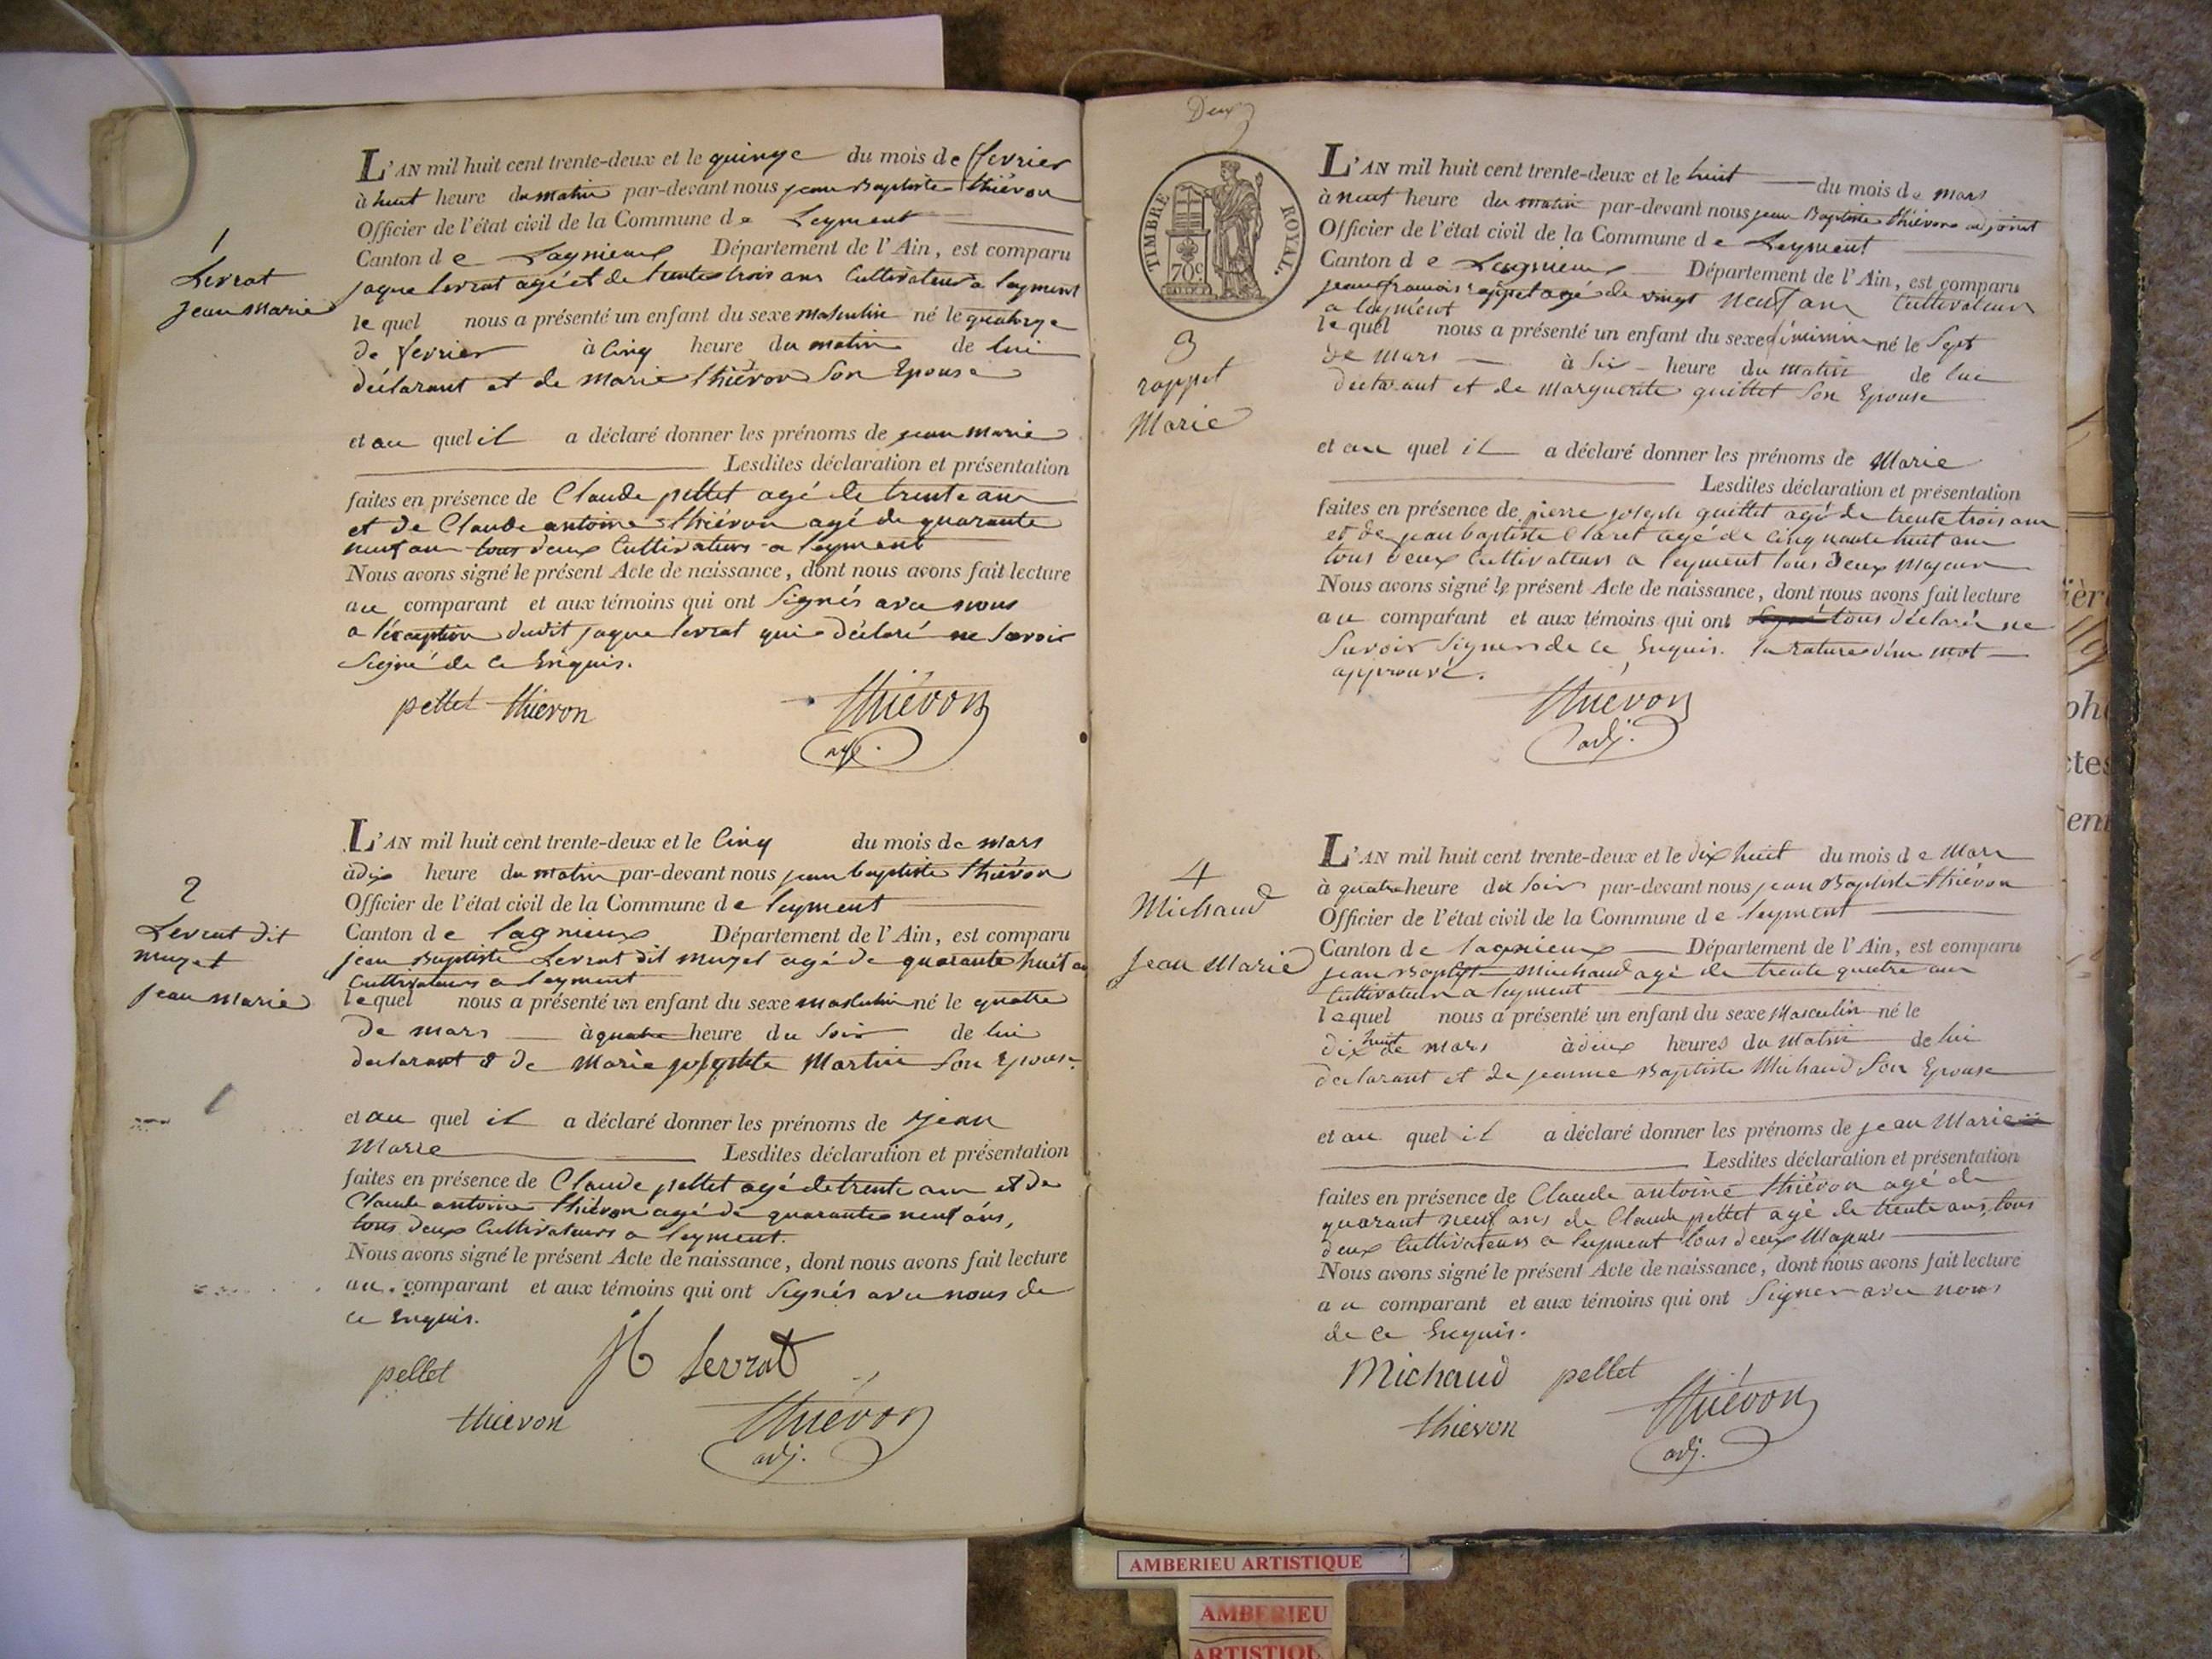 1
Levrat
Jean Marie
L'AN mil huit cent trente-deux et le quinze du mois de fevrier
à huit heure du matin par-devant nous jean Baptiste thiévon
Officier de l'état civil de la Commune de Leyment
Canton de Lagnieux Département de l'Ain, est comparu
jaque levrat agé et de trente trois ans Cultivateur a leyment
le quel nous a présenté un enfant du sexe masculin né le quatorze
de fevrier à Cinq heure du matin de lui
déclarant et de Marie thiévon Son Epouse
et au quel il a déclaré donner les prénoms de jean marie
Lesdites déclaration et présentation
faites en présence de Claude pellet agé de trente ans
et de Claude antoine thiévon agé de quarante
neuf ans tous deux Cultivateurs a leyment
Nous avons signé le présent Acte de naissance, dont nous avons fait lecture
au comparant et aux témoins qui ont Signés avec nous
a l'éxception dudit jaque levrat qui a déclaré ne Savoir
Signé de ce Enquis.
pellet thievon thiévon
adj.
2
Levrat dit
muzet
jean marie
L'AN mil huit cent trente-deux et le Cinq du mois de mars
à dix heure du matin par-devant nous jean baptiste thiévon
Officier de l'état civil de la Commune de leyment
Canton de lagnieux Département de l'Ain, est comparu
jean Baptiste Levrat dit muzet agé de quarante huit an
Cultivateurs a leyment
le quel nous a présenté un enfant du sexe masculin né le quatre
de mars à quatre heure du Soir de lui
declarant & de Marie josephte Martin Son Epouse.
et au quel il a déclaré donner les prénoms de jean
Marie Lesdites déclaration et présentation
faites en présence de Claude pellet agé de trente ans et de
Claude antoine thiévon agé de quarante neuf ans,
tous deux Cultivateurs a leyment.
Nous avons signé le présent Acte de naissance, dont nous avons fait lecture
au comparant et aux témoins qui ont Signés avec nous de
ce Enquis.
pellet levrat
thievon thiévon
adj.
Deux
TIMBRE ROYAL.
70c
3
rappet
Marie
L'AN mil huit cent trente-deux et le huit du mois de mars
à neuf heure du matin par-devant nous jean Baptiste thiévon adjoint
Officier de l'état civil de la Commune de Leyment
Canton de Lagnieux Département de l'Ain, est comparu
jean francois rappet agé de vingt neuf ans Cultivateur
a leyment
le quel nous a présenté un enfant du sexe féminin né le Sept
de Mars à Six heure du matin de lui
déclarant et de Marguerite quittet Son Epouse
et au quel il a déclaré donner les prénoms de Marie
Lesdites déclaration et présentation
faites en présence de pierre joseph quittet agé de trente trois ans
et de jean baptiste Claret agé de Cinquante huit ans
tous deux Cultivateurs a leyment tous deux Majeurs
Nous avons signé le présent Acte de naissance, dont nous avons fait lecture
au comparant et aux témoins qui ont tous déclaré ne
Savoir Signer de ce Enquis. la rature d'un mot
approuvé.
thiévon
adj.
4
Michaud
Jean Marie
L'AN mil huit cent trente-deux et le dix huit du mois de Mars
à quatre heure du Soir par-devant nous jean Baptiste thiévon
Officier de l'état civil de la Commune de leyment
Canton de lagnieux Département de l'Ain, est comparu
jean Baptiste Michaud agé de trente quatre ans
Cultivateur a leyment
le quel nous a présenté un enfant du sexe Masculin né le
dix huit de mars à deux heures du Matin de lui
declarant et de jeanne Baptiste Michaud Son Epouse
et au quel il a déclaré donner les prénoms de jean Marie
Lesdites déclaration et présentation
faites en présence de Claude antoine thiévon agé de
quarant neuf ans de Claude pellet agé de trente ans, tous
deux Cultivateurs a leyment tous deux Majeurs
Nous avons signé le présent Acte de naissance, dont nous avons fait lecture
au comparant et aux témoins qui ont Signer avec nous
de ce Enquis.
Michaud pellet
thievon thiévon
adj.
AMBERIEU ARTISTIQUE
AMBERIEU
ARTISTIQU